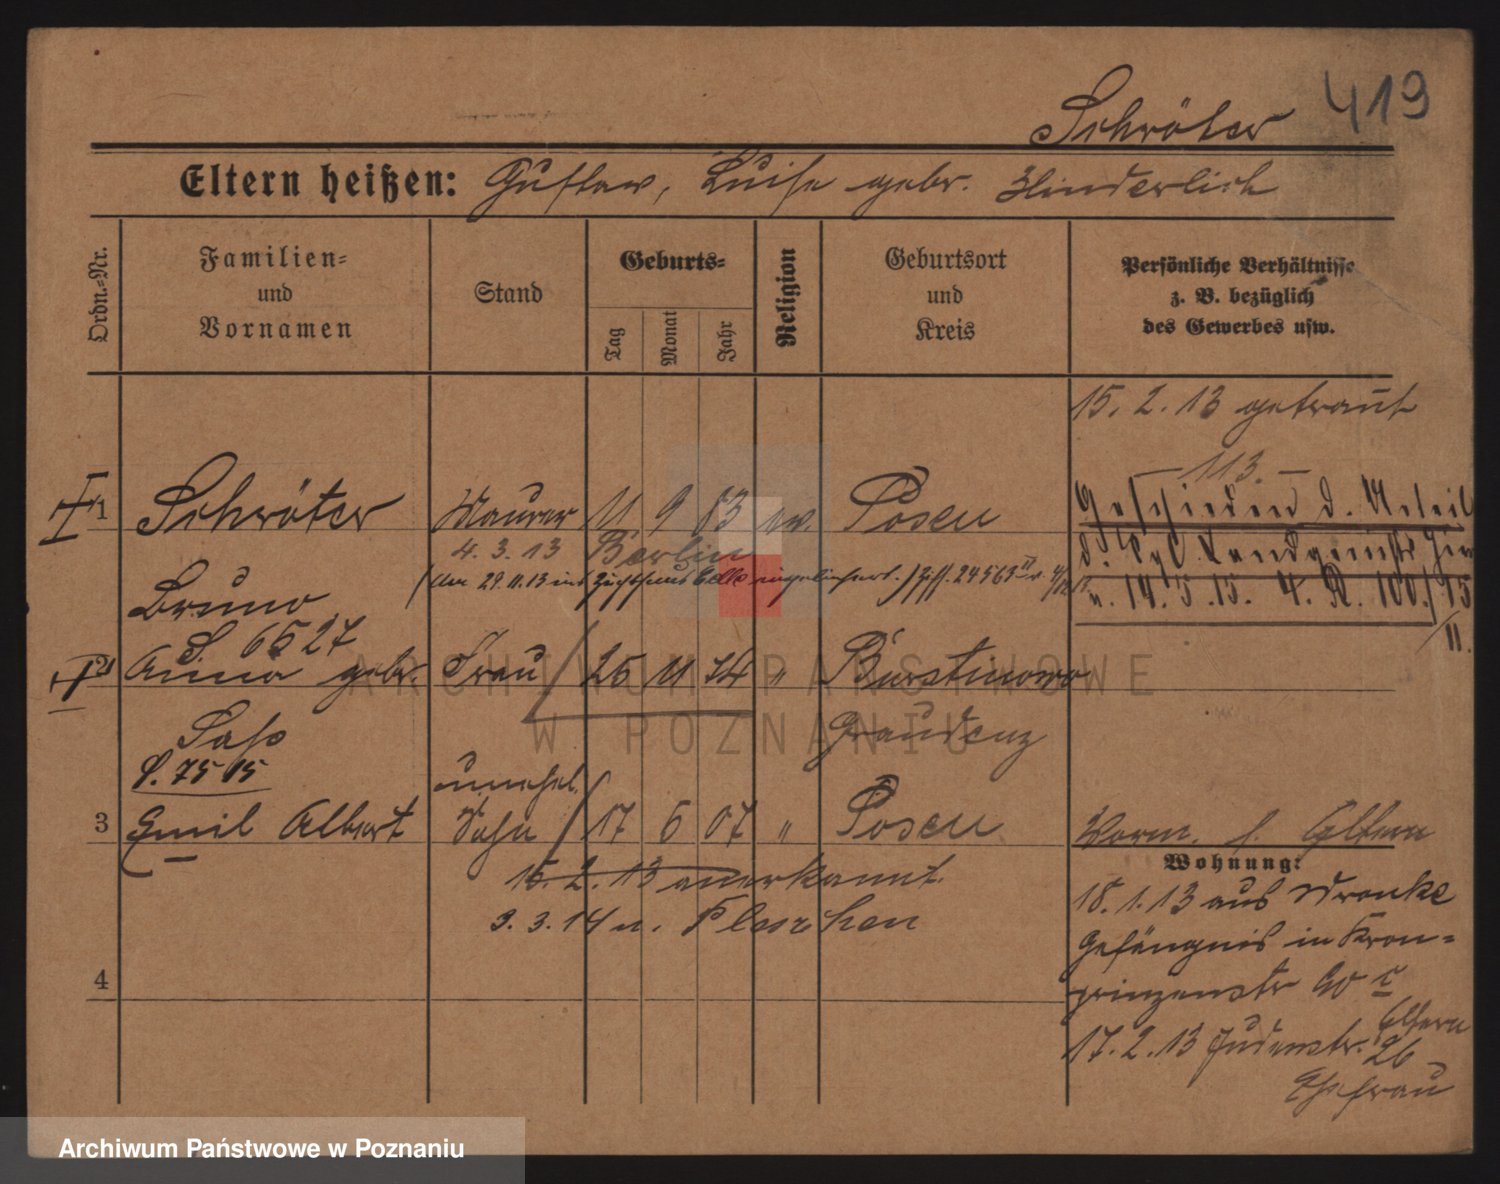 419
Schröter
Eltern heißen: Gustav, Luise gebr. Hinderlich
Ordn.-Nr.
Familien-
und
Vornamen
Stand
Geburts-
Tag
Monat
Jahr
Religion
Geburtsort
und
Kreis
Persönliche Verhältnisse
z. B. bezüglich
des Gewerbes usw.
15. 2. 13 getraut
113.
1 Schröter Maurer 11 9 83 ev. Posen
Geschieden d. Urteil
4. 3. 13 Berlin
d. Kgl. Landgerichts hier
(Am 29. 11. 13 ins Zuchthaus Celle eingeliefert.) 24563
v. 14. 5. 15. 4. R. 100/15
11.
Bruno
S 6527
2 Anna gebr. Frau 25 11 74 " Burstinowo
Saß
Graudenz
S. 7515
unehel.
3 Emil Albert Sohn 17 6 07 " Posen
Vorm. s. Eltern
Wohnung:
15. 2. 13 anerkannt.
18. 1. 13 aus Wronke
3. 3. 14 n. Pleschen
Gefängnis in Kron-
4
prinzenstr 90 r
Eltern
17. 2. 13 Judenstr. 26
Ehefrau
ARCHIWUM PAŃSTWOWE
W POZNANIU
Archiwum Państwowe w Poznaniu